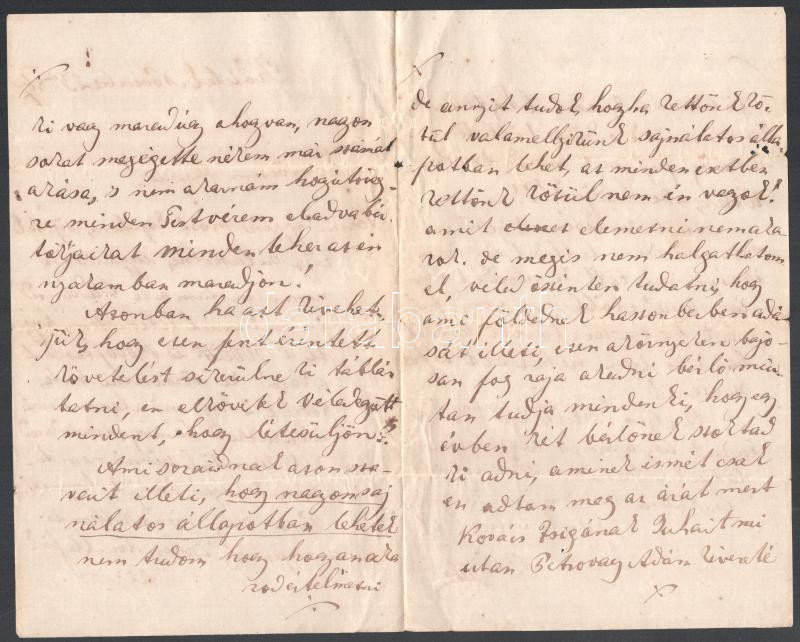 ki vagy marad úgy ahogvan, nagon
sokat megégette nékem már szamát
azása, s nem akarnám hogy utóvég-
re minden Testvérem eladva bá-
torjaikat minden teher az én
nyakamban maradjon!
Azonban ha azt kivehet-
jük, hogy ezen fent érintett
követelést sikerülne ki tábláz
tatni, én elkövetek Véled együtt
mindent, hogy létesüljön!
Ami soraidnak azon sza-
vait illeti, hogy nagyon saj
nálatos állapotban lehetek
nem tudom hogy hogyan aka
rod értelmezni
de annyit tudok, hogy ha kettőnk kö-
zül valamellyikünk sajnálatos álla-
potban lehet, az minden esetben
kettőnk közül nem én vagok!
amit elemezni nem aka
rok. de mégis nem halgathatom
el, véled őszinten tudatni, hogy
ami földednek haszonbérbe adá-
sát illeti, ezen a környeken bajo-
san fog rája akadni bérlő miu-
tán tudja mindenki, hogy egy
évben két bérlőnek szoktad
ki adni, aminek ismét csak
én adtam meg az árát mert
Kovács Zsigának Juhait mi
után Petrovay Ádám kivereté